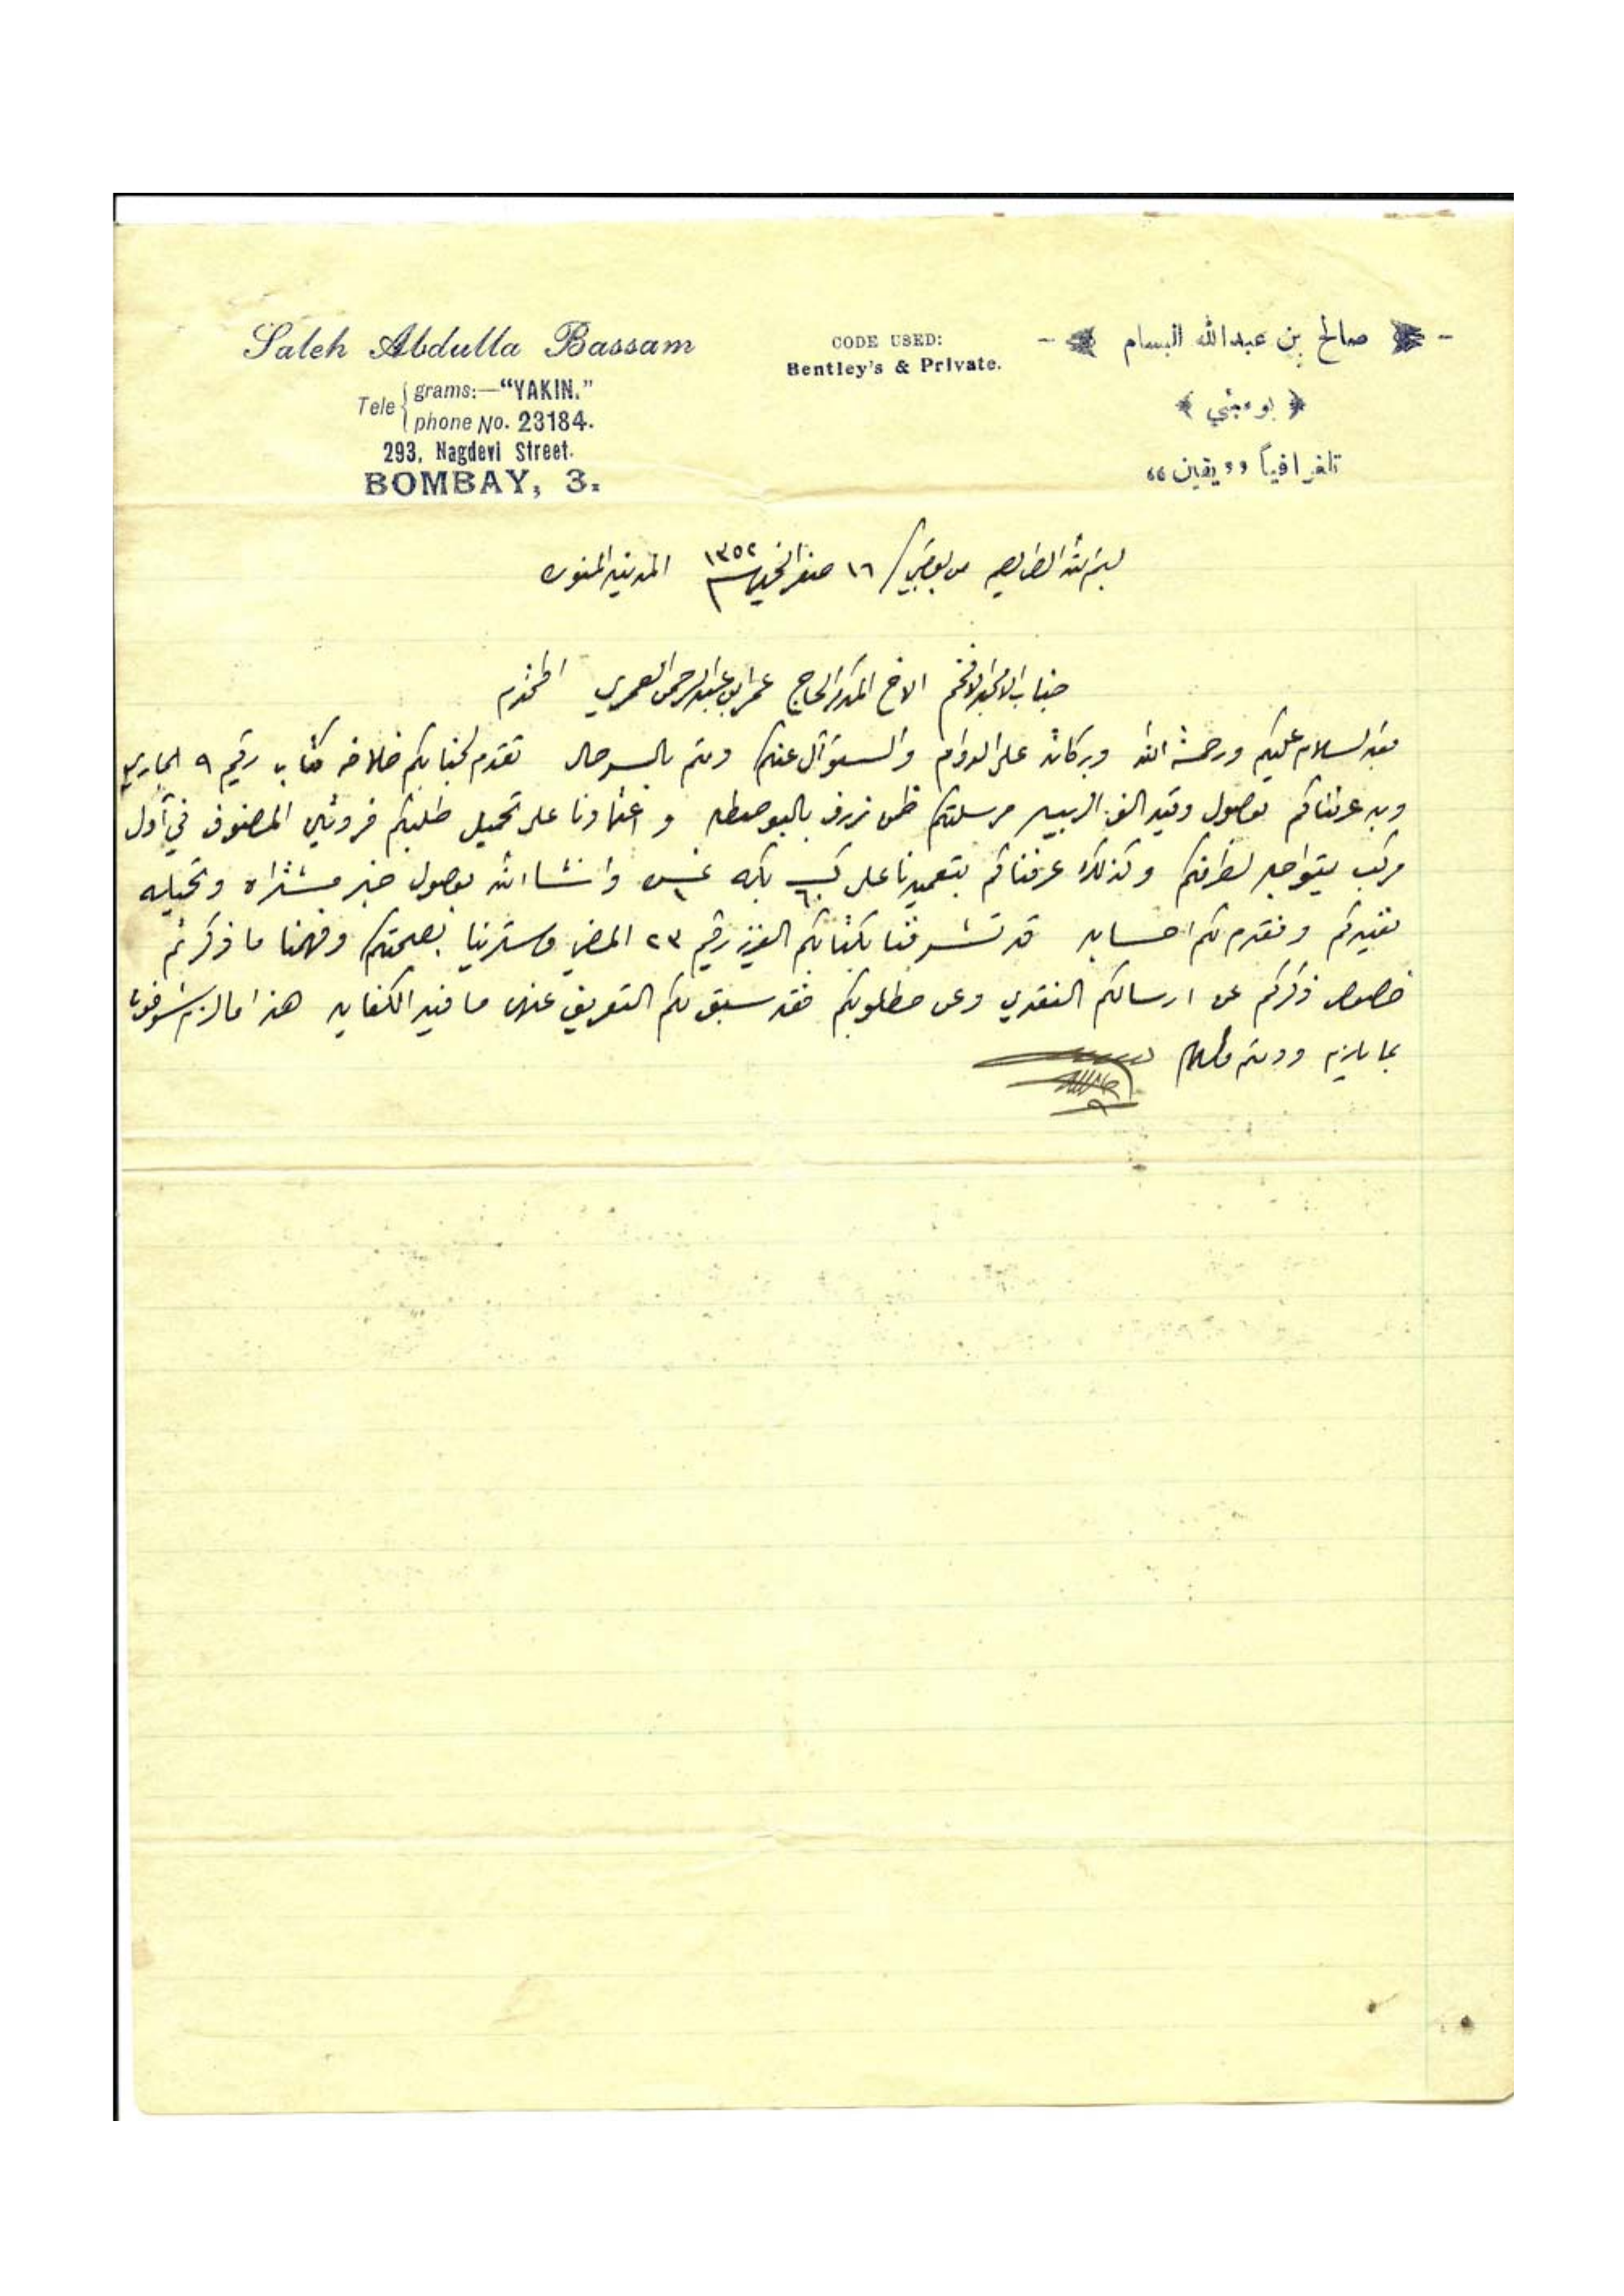 Saleh Abdulla Bassam
Tele { grams:—"YAKIN."
phone No. 23184.
293, Nagdevi Street.
BOMBAY, 3.
CODE USED:
Bentley's & Private.
صالح بن عبدالله البسام
بومبئي
تلغرافياً ,,يقين,,
من بومبي / ١٦ صفر الخير ١٣٥٢ المدينه المنوره
جناب الامجد الافخم الاخ المكرم الحاج عمر ابن عبدالرحمن العمري المحترم
بعد السلام عليكم ورحمة الله وبركاته على الدوام والسؤال عنكم ودمتم بالسرحال تقدم لجنابكم خلافه كتاب رقيم ٩ الجاري
وبه عرفناكم بوصول وقيد الف الربيه مرسلتكم بالبوصطه واعتمادنا على تحميل طلبكم المصنوف في أول
مركب يتواجه لطرفكم وكذلك عرفناكم بتعميدنا على وانشاالله بوصول خبر مشتراه وتحميله
نفيدكم ونقدم لكم احسابه قد تشرفنا بكتابكم العزيز رقيم ٢٣ المضي وسترينا بصحتكم وفهمنا ما ذكرتم
خصوص ذكركم عن ارسالكم النقدي وعن مطلوبكم فقد سبق لكم التعريف عنهن ما فيه الكفايه هذا مالزم شرفونا
بما يلزم ودمتم